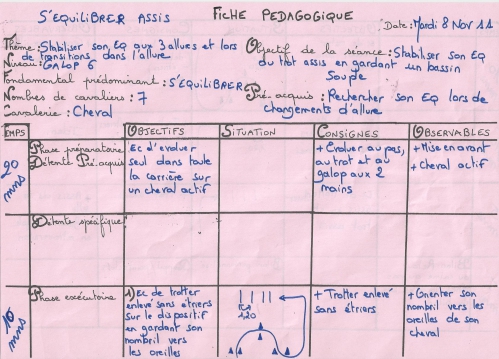 S'EQUILIBRER ASSIS
FICHE PEDAGOGIQUE
Date: Mardi 8 Nov 11
Thème: Stabiliser son EQ aux 3 allures et lors
de transitions dans l'allure
Niveau: GALOP 6
Fondamental prédominant: S'EQUILIBRER
Nombres de cavaliers: 7
Cavalerie: Cheval
Objectif de la séance: Stabiliser son EQ
du trot assis en gardant un bassin
souple
Pré acquis: Rechercher son EQ lors de
changements d'allure
TEMPS
OBJECTIFS
SITUATION
CONSIGNES
OBSERVABLES
20
mns
Phase préparatoire
Détente Pré.acquis
Ec d'évoluer
seul dans toute
la carrière sur
un cheval actif
+ Evoluer au pas,
au trot et au
galop aux 2
mains
+ Mise en avant
+ Cheval actif
Détente spécifique
10
mns
Phase exécutoire
1) Ec de trotter
enlevé sans étriers
sur le dispositif
en gardant son
nombril vers
les oreilles
1,20
+ Trotter enlevé
sans étriers
+ Orienter son
nombril vers les
oreilles de son
cheval